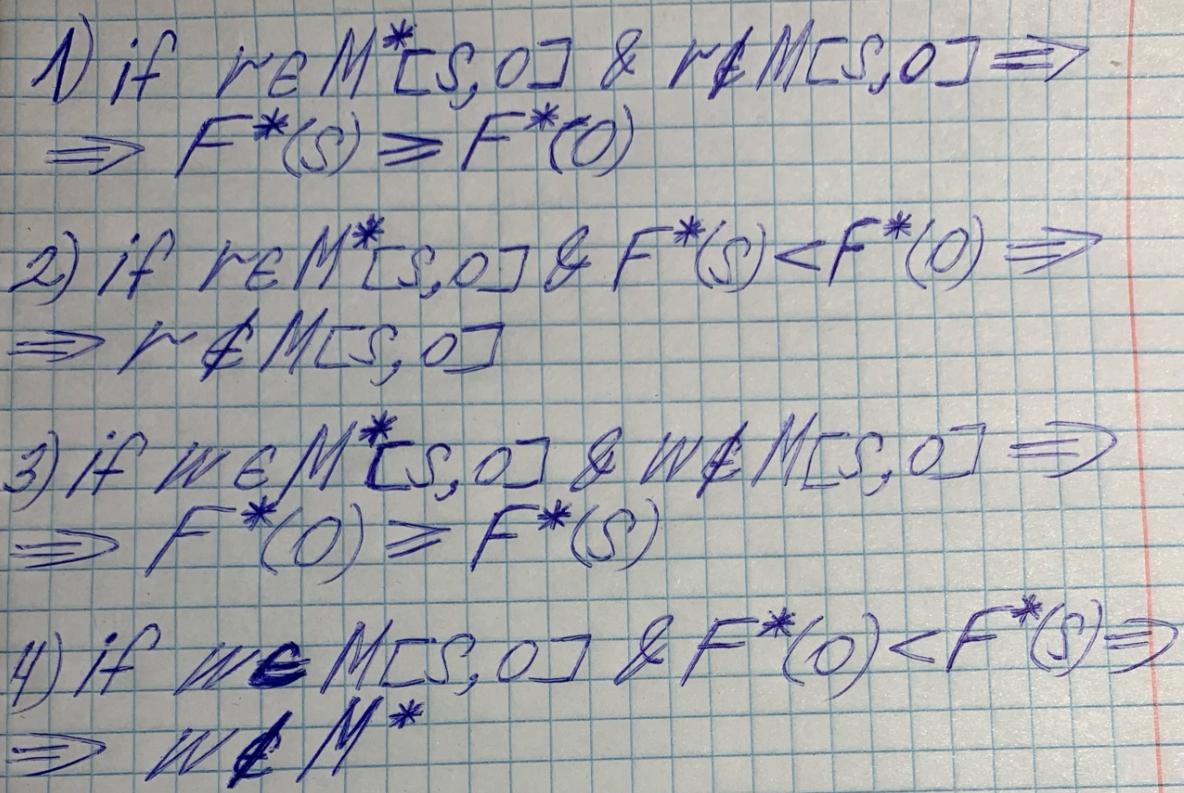 1) if r∈M*[S,O] & r∉M[S,O] ⇒
⇒ F*(S) ⩾ F*(O)
2) if r∈M*[S,O] & F*(S) < F*(O) ⇒
⇒ r∉M[S,O]
3) if w∈M*[S,O] & w∉M[S,O] ⇒
⇒ F*(O) ⩾ F*(S)
4) if w∈M[S,O] & F*(O) < F*(S) ⇒
⇒ w∉M*